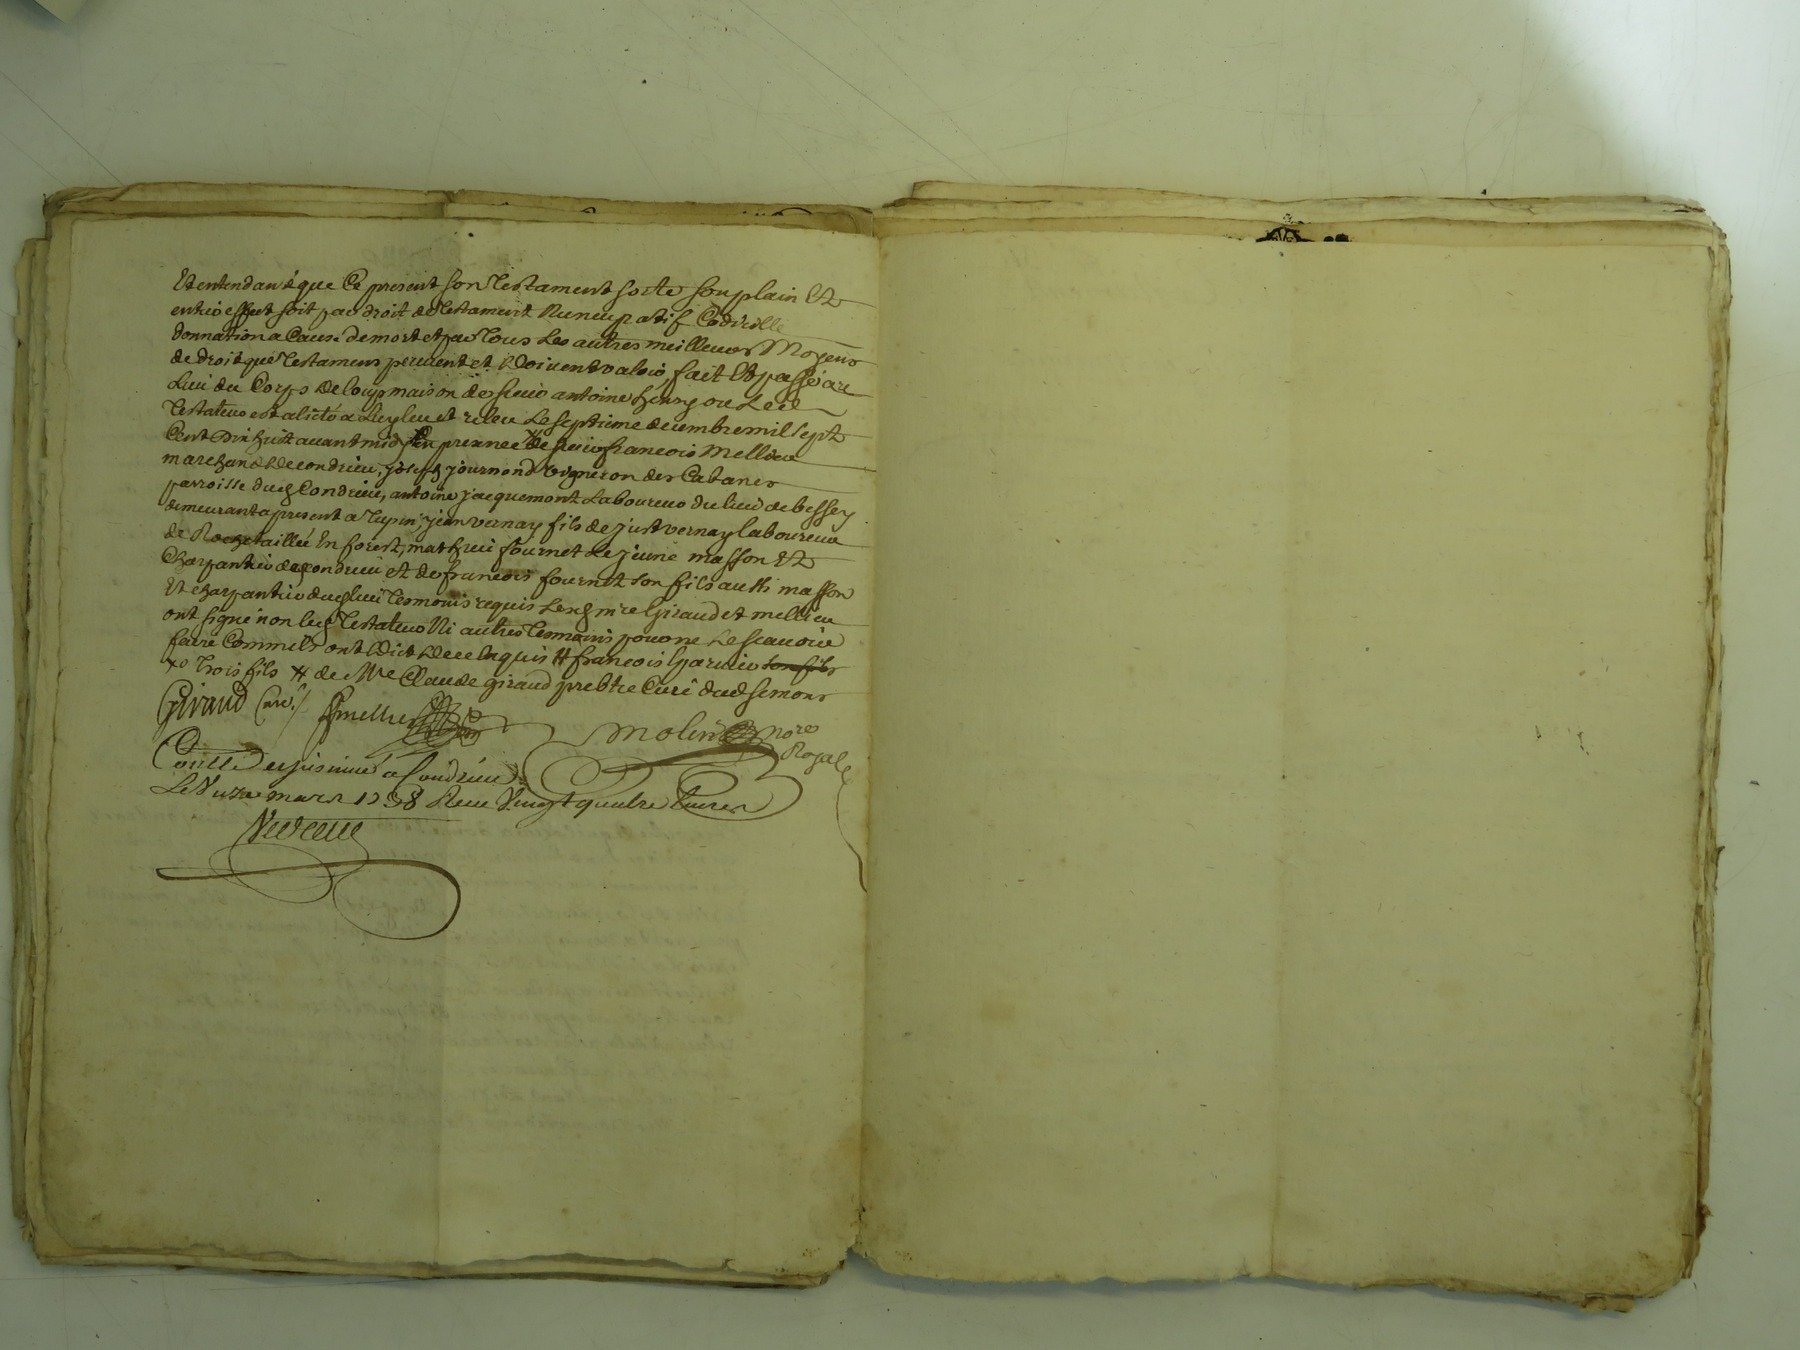 Et entendant que Ce present son Testament sorte son plain Et
entier effect soit par droit de Testament Nuncupatif Codicille
donnation a Cause de mort et par Tous Les autres meilleurs Moyens
de droit que Testamens peuvent et Doivent valoir, fait Et passé au
Lieu du Corps De loup maison de sieur antoine ou Led
Testateur est alicté a Luy leu et releu Le septieme decembre mil sept
Cent Dix huit avant midy En presence De sieur francois Mellieu
marchand de condrieu, joseph journond vigneron des Cabanes
parroisse dud Condrieu, antoine jacquemont Laboureur du lieu de bessey
demeurant a present a Tupin, jean vernay fils de just vernay laboureur
de Rochetaillée En forest, mathieu fournet Le jeune masson Et
Charpantier de Condrieu et de francois fournet son fils aussi masson
Et charpantier dud lieu Tesmoins requis Lesq mre Giraud et mellieu
ont signé non led Testateur Ni autres Tesmoins pour ne Le scavoir
faire Comme ils ont Dict De ce Enquis # francois Garnier son fils
xo Trois fils # de Mre Claude giraud prebtre Curé dud semons
Giraud Curé / fmellieu Molin Nore
Royal
Conllé et insinué a Condrieu
Le mars 1738 Receu Vingt quatre Livres